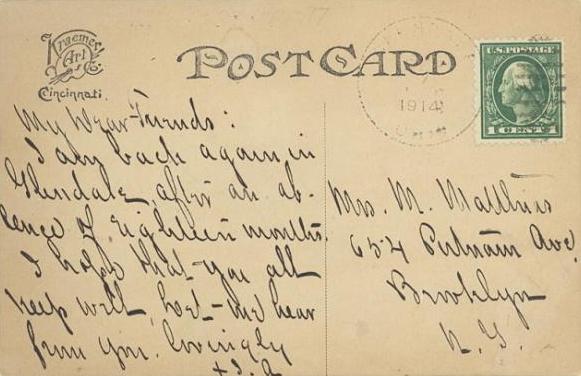 Kraemer
Art
Co.
Cincinnati.
POST CARD
1914
U.S. POSTAGE
1 CENT 1
My Dear Friends:
I am back again in
Glendale, after an ab-
sence of eighteen months.
I hope that you all
keep well, let me hear
from you. Lovingly
Mrs. M. Matthias
654 Putnam Ave,
Brooklyn
N.Y.